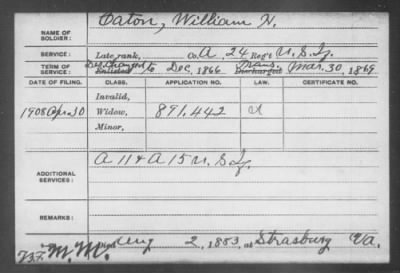 NAME OF SOLDIER: Eaton, William H.
SERVICE: Late rank, Co. A, 24 Reg't U.S. Inf.
TERM OF SERVICE: Enlisted Dec, 1866 Trans. Discharged Mar. 30, 1869
DATE OF FILING. CLASS. APPLICATION NO. LAW. CERTIFICATE NO.
Invalid,
1908 Apr. 30 Widow, 891.442
Minor,
ADDITIONAL SERVICES: A 11 & A 15 U.S. Inf.
REMARKS:
Aug 2, 1883, at Strasburg Va.